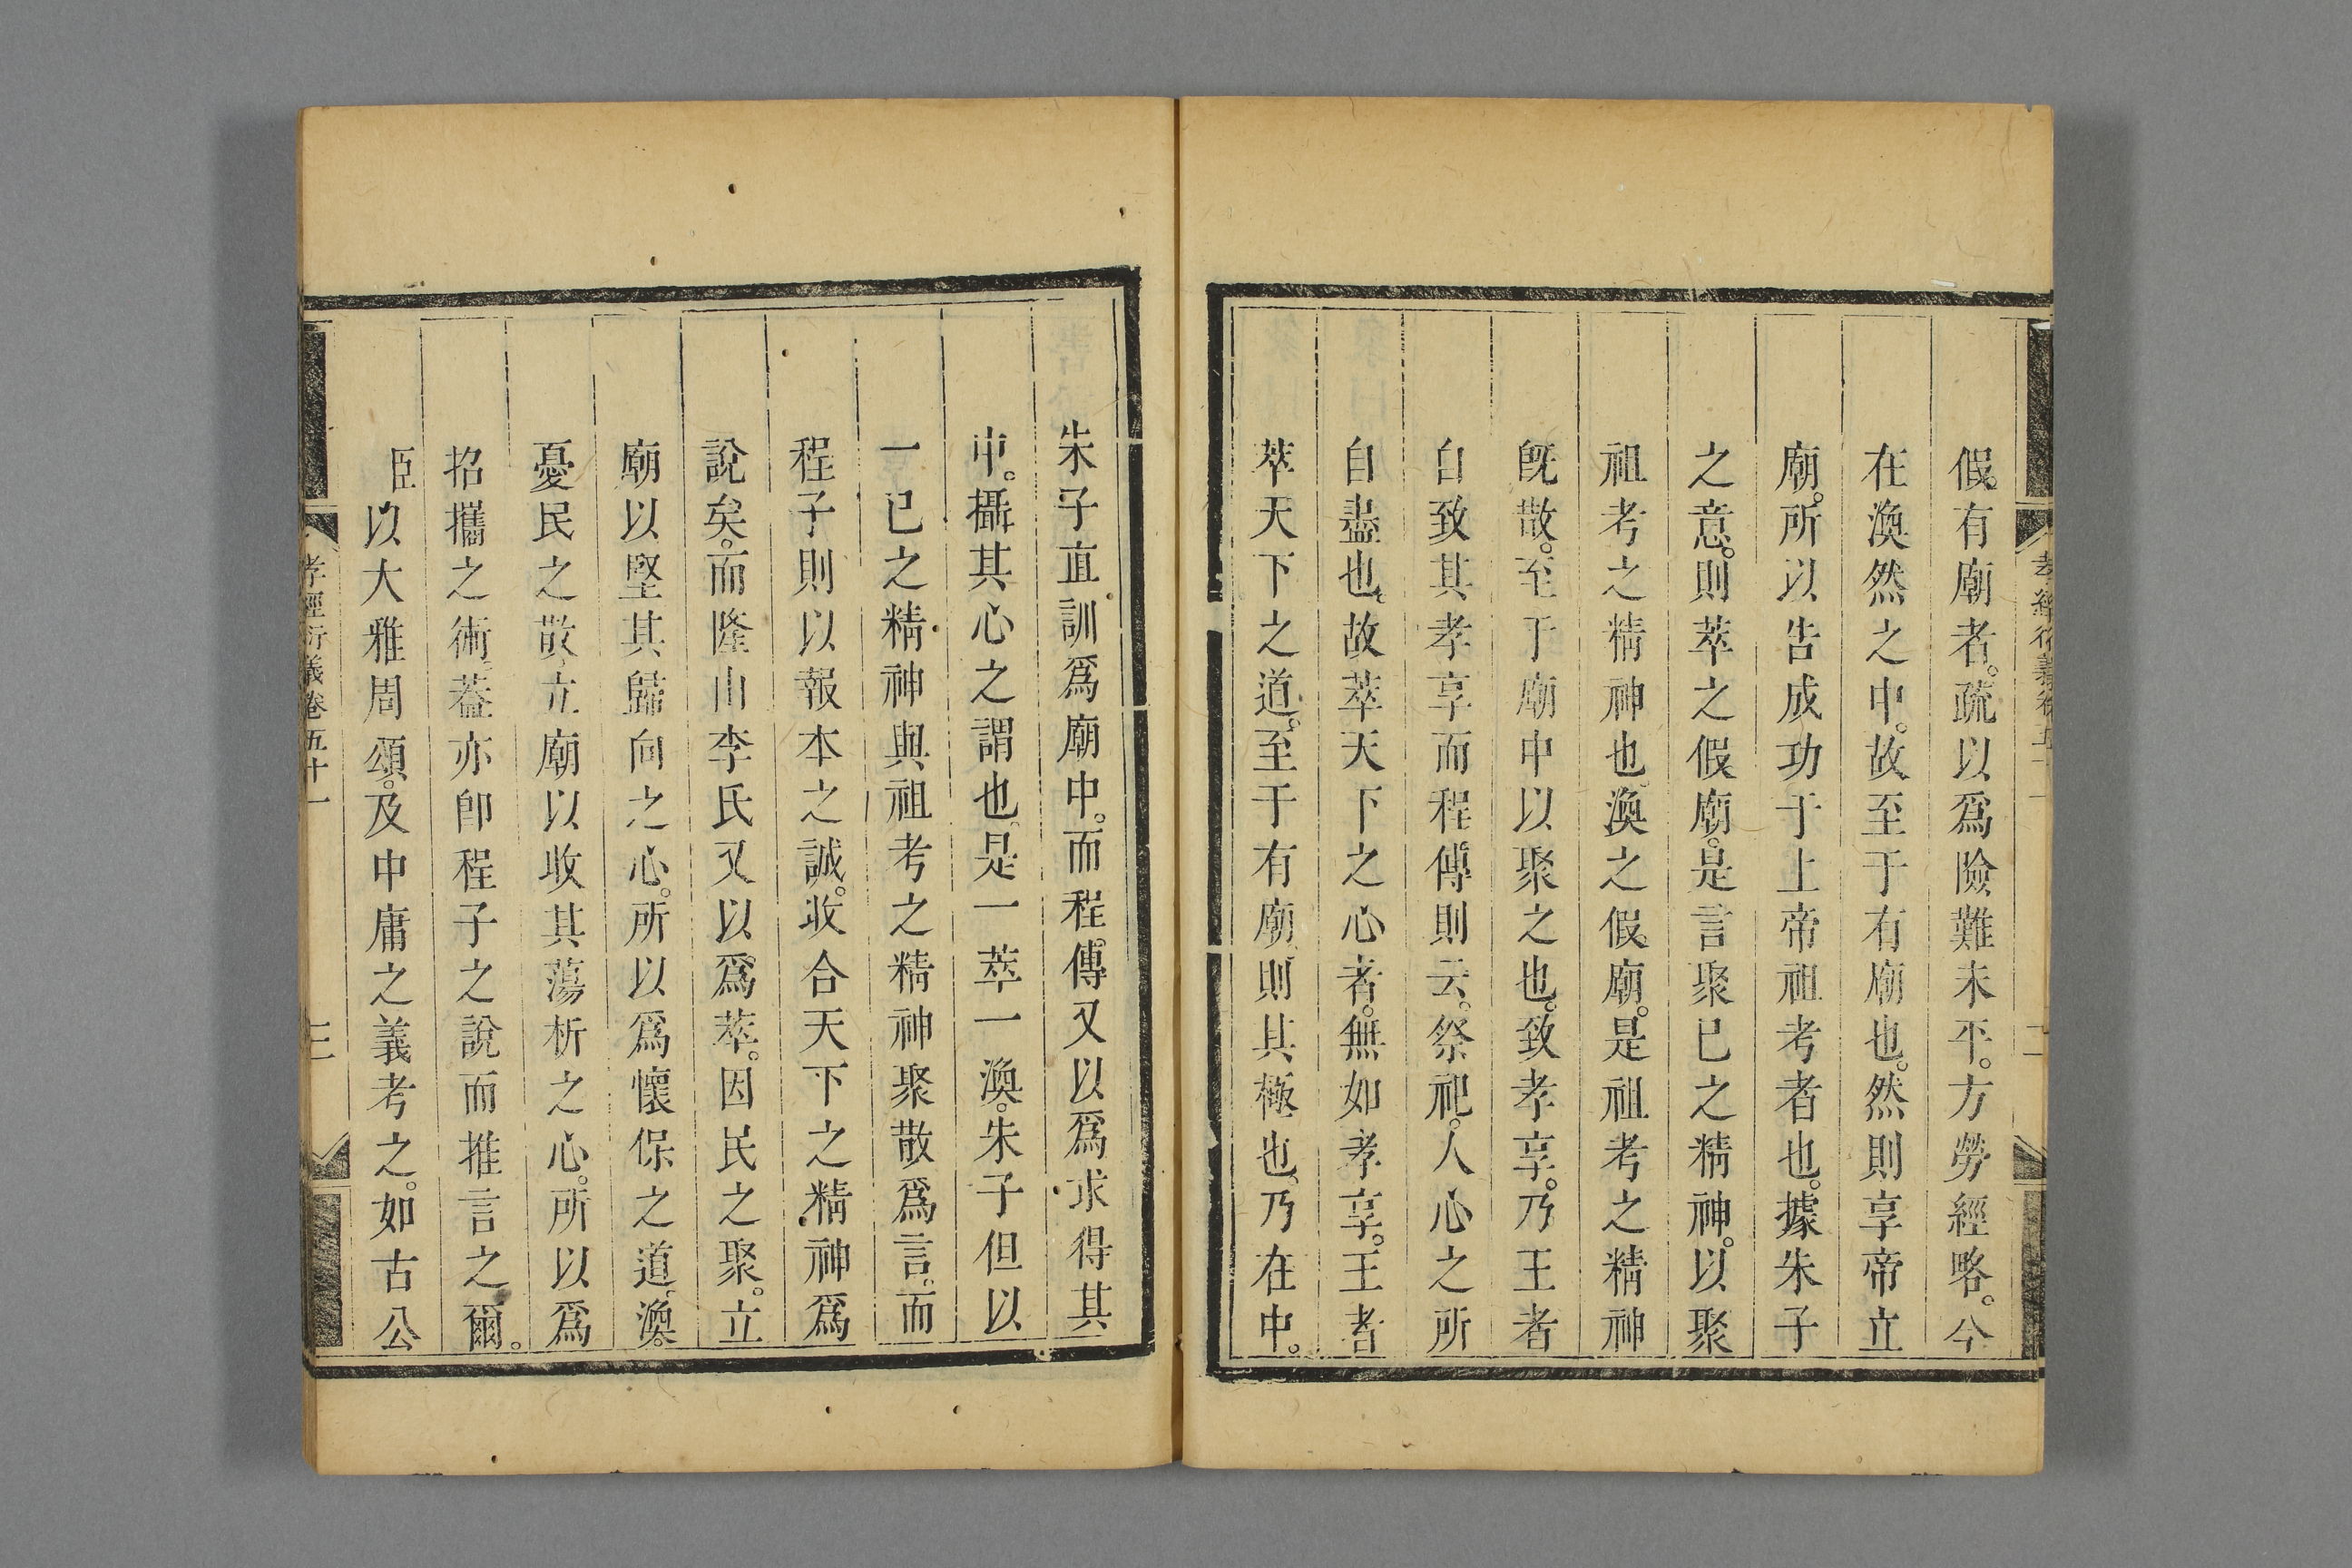 孝經衍義卷五十一
二
假。有廟者。疏以爲險難未平。方勞經略。今
在渙然之中。故至于有廟也。然則享帝立
廟。所以告成功于上帝祖考者也。據朱子
之意。則萃之假廟。是言聚已之精神。以聚
祖考之精神也。渙之假廟。是祖考之精神
旣散。至于廟中以聚之也。致孝享。乃王者
自致其孝享而程傳則云。祭祀。人心之所
自盡也。故萃天下之心者。無如孝享。王者
萃天下之道。至于有廟。則其極也。乃在中。
朱子直訓爲廟中。而程傳又以爲求得其
中。攝其心之謂也。是一萃一渙。朱子但以
一已之精神與祖考之精神聚散爲言。而
程子則以報本之誠。收合天下之精神爲
說矣。而隆山李氏又以爲萃。因民之聚。立
廟以堅其歸向之心。所以爲懷保之道。渙。
憂民之散。立廟以收其蕩析之心。所以爲
招攜之術。葢亦卽程子之說而推言之爾。
臣以大雅周頌。及中庸之義考之。如古公
孝經衍義卷五十一
三